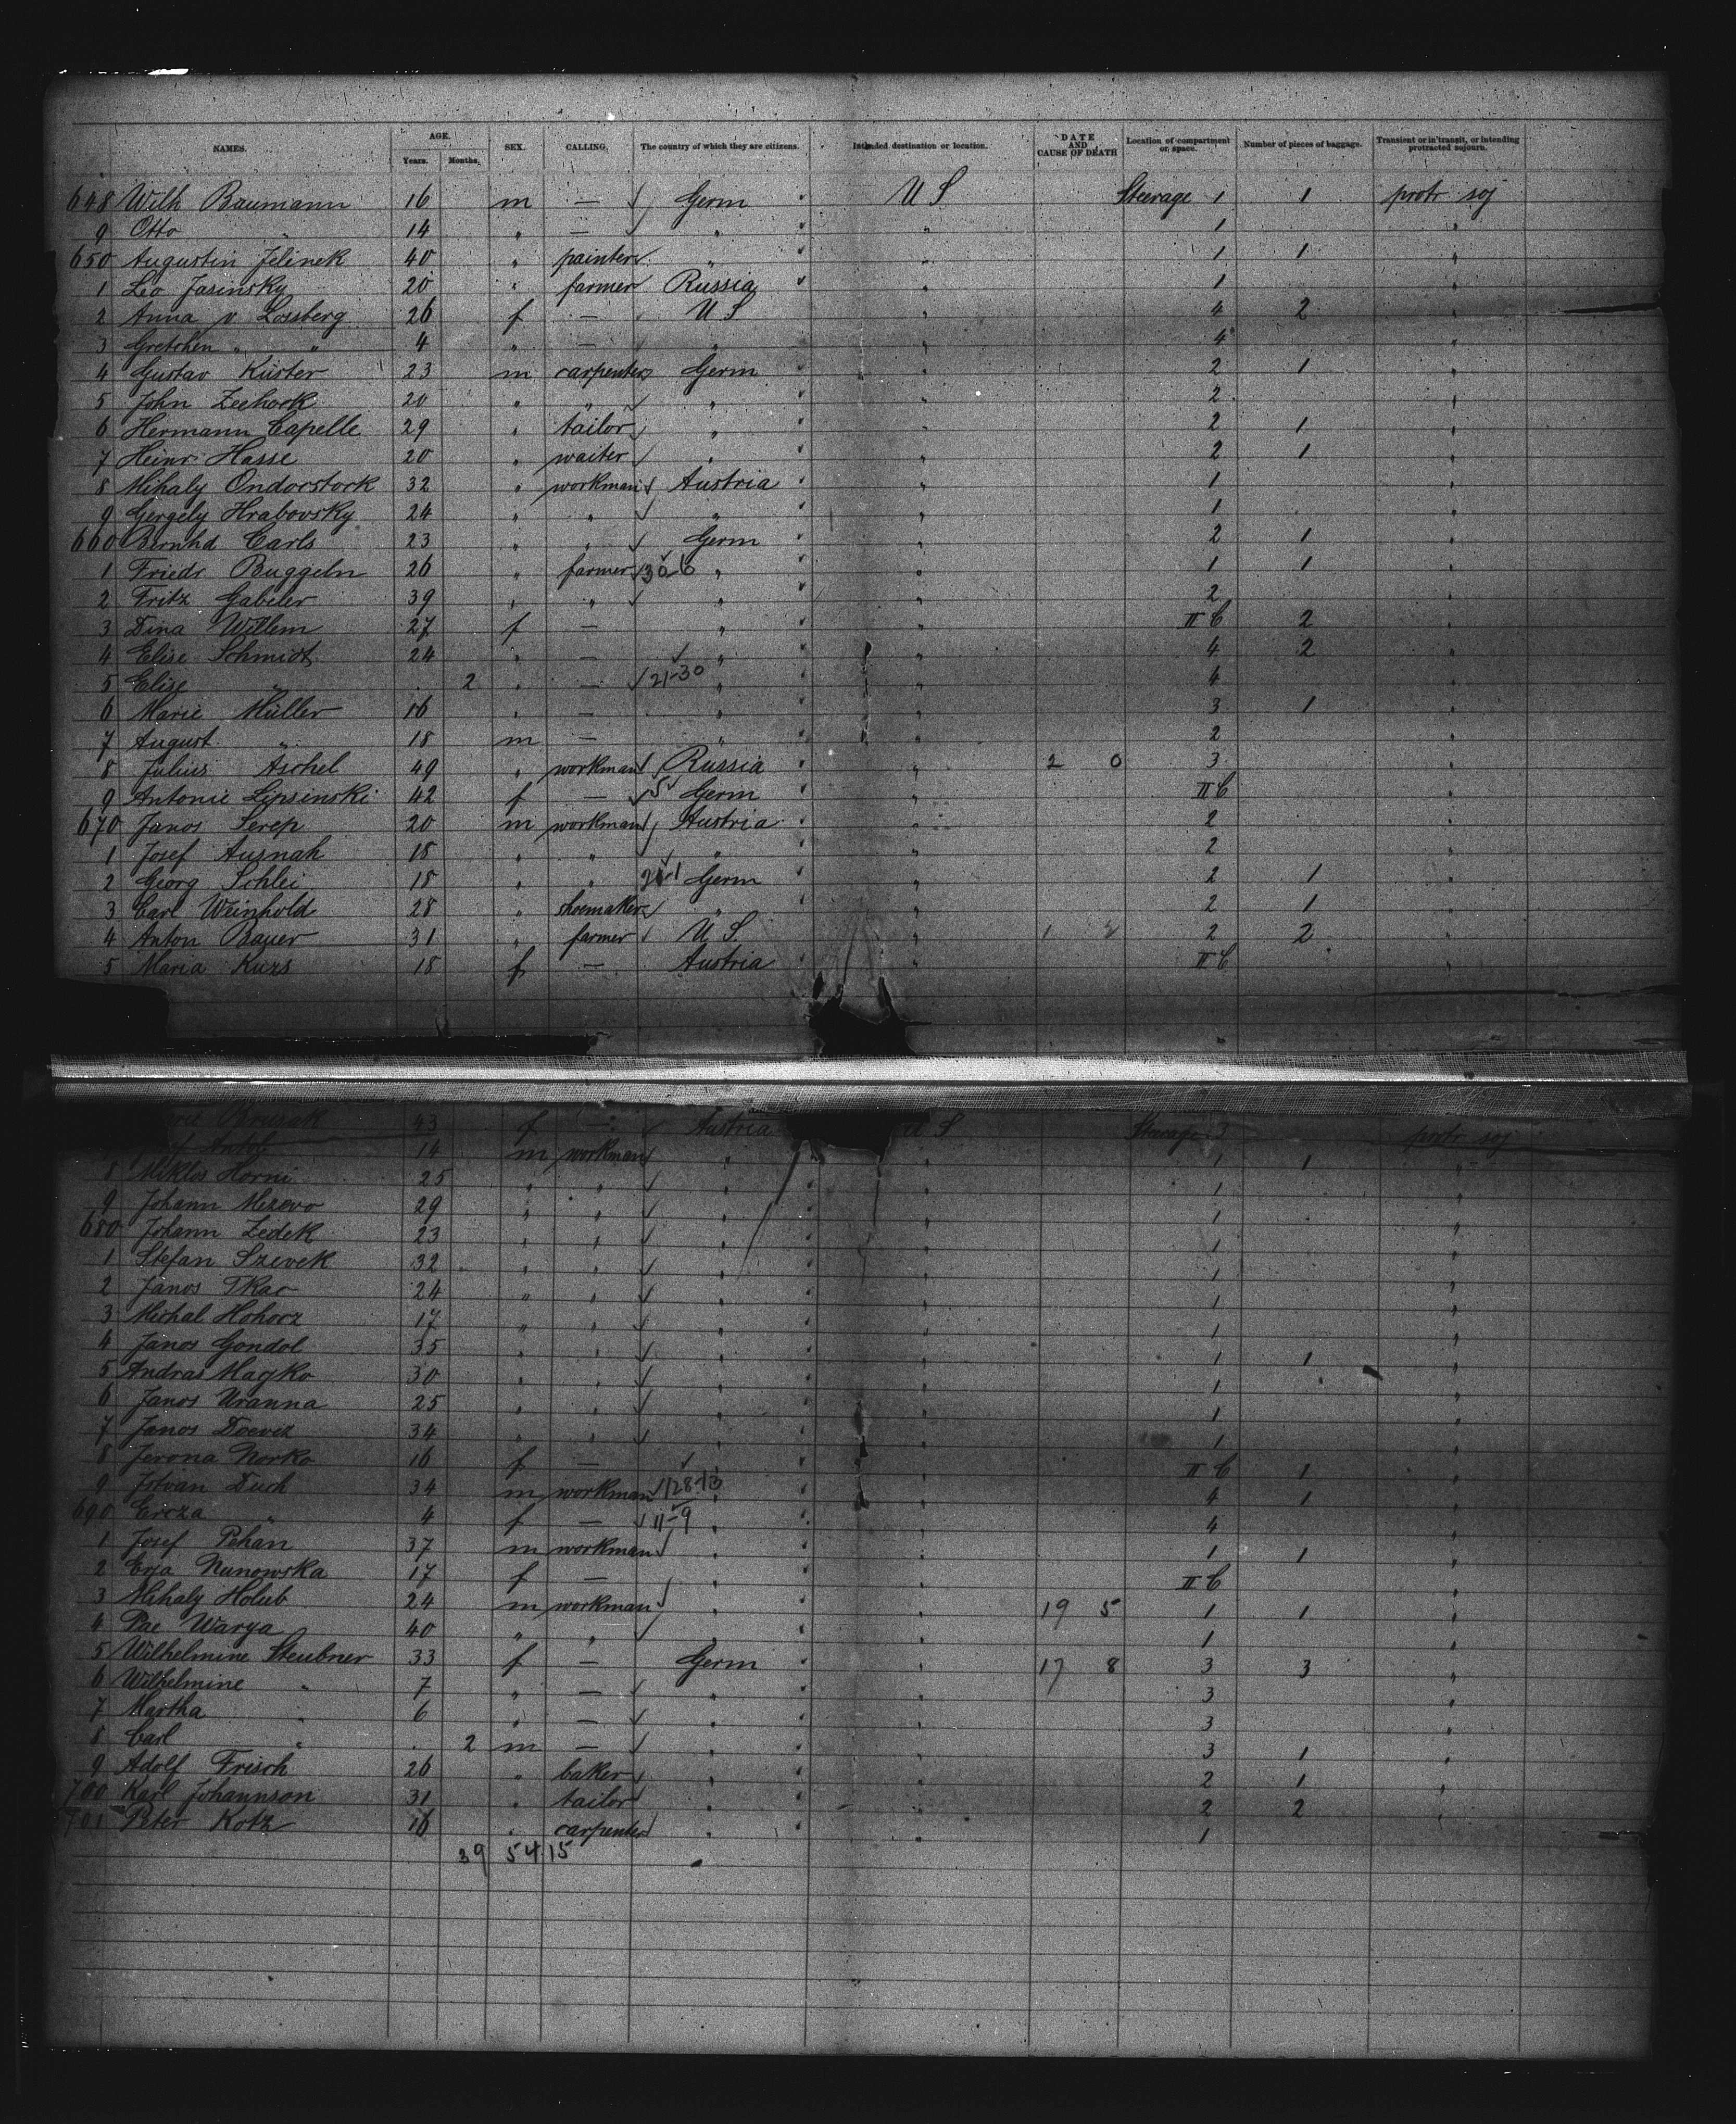 NAMES. AGE. Years. Months. SEX. CALLING. The country of which they are citizens. Intended destination or location. DATE AND CAUSE OF DEATH Location of compartment or space. Number of pieces of baggage. Transient or in transit, or intending protracted sojourn.
648 Wilh Baumann 16 m — Germ U S Steerage 1 1 protr soj
9 Otto " 14 " — " " 1 "
650 Augustin Jelinek 40 " painter " " 1 1 "
1 Leo Jasinsky 20 " farmer Russia " 1 "
2 Anna v Lossberg 26 f — U S " 4 2 "
3 Gretchen " " 4 " — " " 4 "
4 Gustav Küster 23 m carpenter Germ " 2 1 "
5 John Zeehock 20 " " " " 2 "
6 Hermann Capelle 29 " tailor " " 2 1 "
7 Heinr Hasse 20 " waiter " " 2 1 "
8 Mihaly Ondorstork 32 " workman Austria " 1 "
9 Gergely Hrabovsky 24 " " " " 1 "
660 Bernhd Carls 23 " " Germ " 2 1 "
1 Friedr Buggeln 26 " farmer 30-6 " " 1 1 "
2 Fritz Gabeler 39 " " " " 2 "
3 Dina Willem 27 f — " " II C 2 "
4 Elise Schmidt 24 " — " " 4 2 "
5 Elise " 2 " — 21-30 " " 4 "
6 Marie Müller 16 " — " " 3 1 "
7 August " 18 m — " " 2 "
8 Julius Aschel 49 " workman Russia " 2 0 3 "
9 Antonie Lipsinski 42 f — 5 Germ " II C "
670 Janos Serep 20 m workman Austria " 2 "
1 Josef Ausnah 18 " " " " 2 "
2 Georg Schlei 18 " " Germ " 2 1 "
3 Carl Weinhold 28 " shoemaker " " 2 1 "
4 Anton Bauer 31 " farmer U S. " 2 2 "
5 Maria Kuzs 18 f — Austria " II C "
Brusak 43 f — Austria U S Steerage 3 protr soj
Antol 14 m workman " " 1 1 "
8 Miklos Horni 25 " " " " 1 "
9 Johann Mizovo 29 " " " " 1 "
680 Johann Zedek 23 " " " " 1 "
1 Stefan Szevek 32 " " " " 1 "
2 Janos Tkac 24 " " " " 1 "
3 Michal Hohorz 17 " " " " 1 "
4 Janos Gondol 35 " " " " 1 1 "
5 Andras Magko 30 " " " " 1 "
6 Janos Uranna 25 " " " " 1 "
7 Janos Doevez 34 " " " " 1 "
8 Jerona Norko 16 f — " " II C 1 "
9 Istvan Duch 34 m workman 128-13 " " 4 1 "
690 Ercza " 4 f — 11-9 " " 4 "
1 Josef Pehan 37 m workman " " 1 1 "
2 Erja Nunowska 17 f — " " II C "
3 Mihaly Holub 24 m workman " " 19 5 1 1 "
4 Pae Warga 40 " " " " 1 "
5 Wilhelmine Steubner 33 f — Germ " 17 8 3 3 "
6 Wilhelmine " 7 " — " " 3 "
7 Martha " 6 " — " " 3 "
8 Carl " 2 m — " " 3 1 "
9 Adolf Frisch 26 " baker " " 2 1 "
700 Karl Johannson 31 " tailor " " 2 2 "
701 Peter Kotz 16 " carpenter " " 1
39 54 15